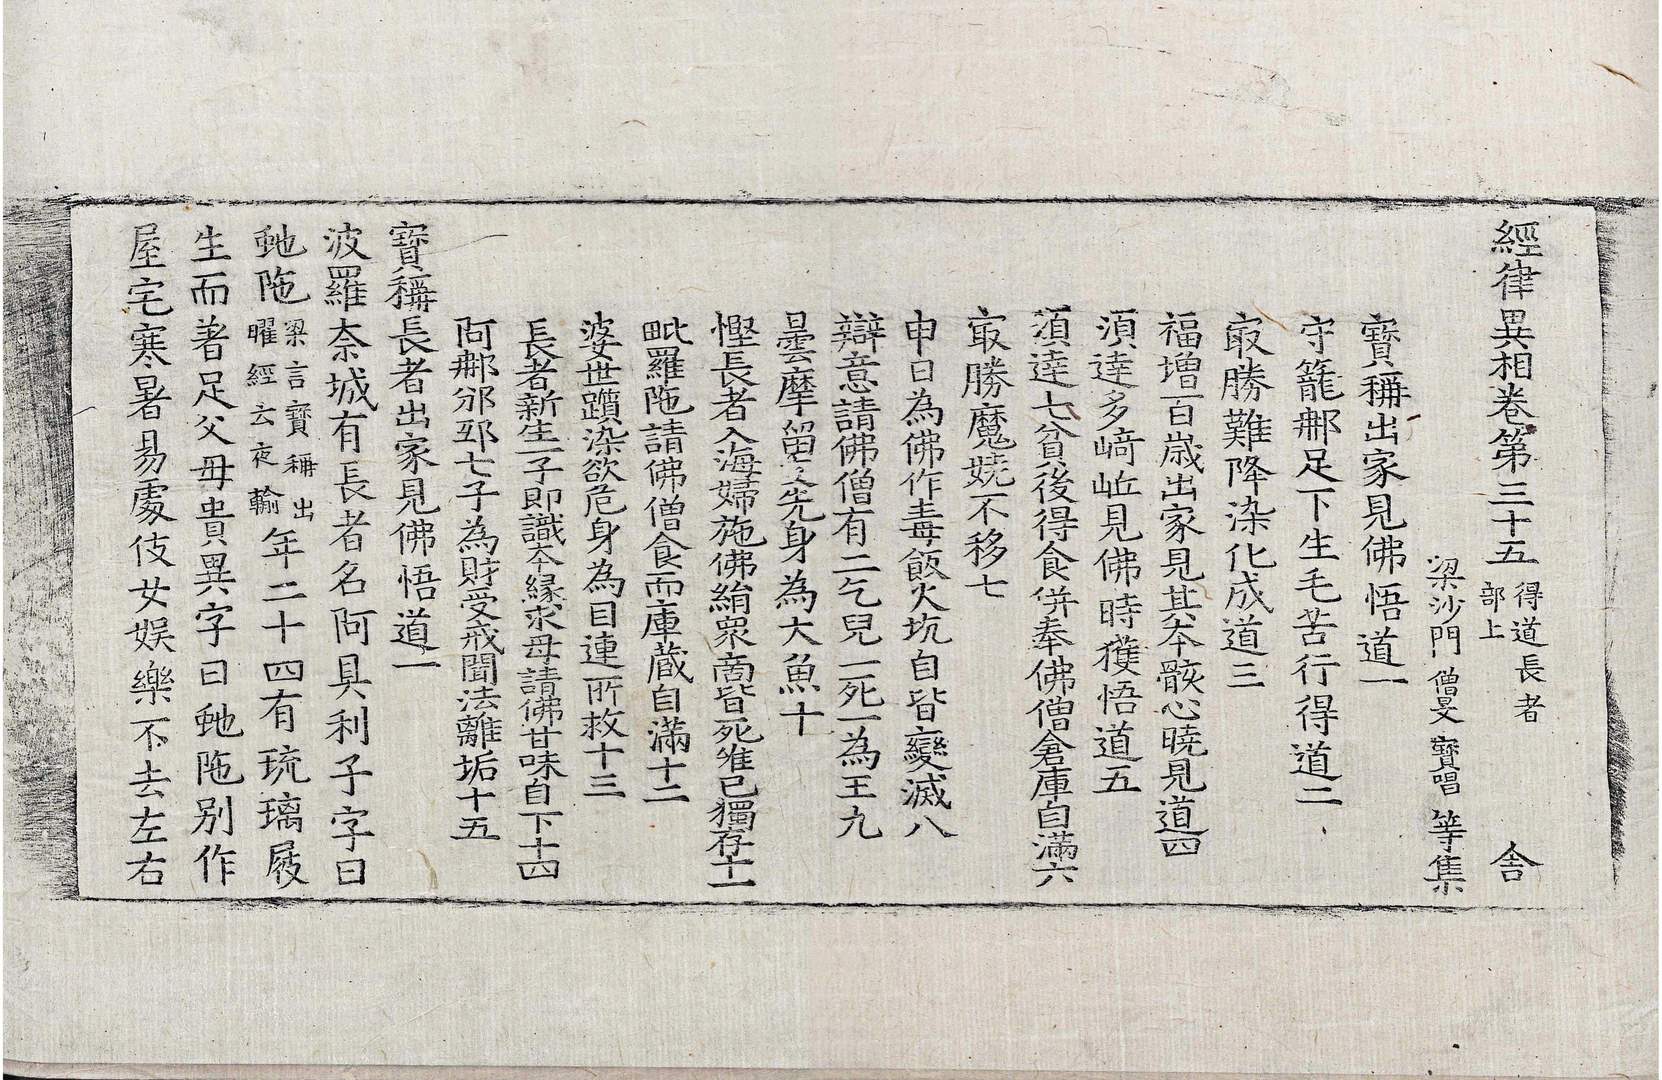 經律異相卷第三十五 得道長者部上 舍
梁沙門僧旻寶唱等集
寶稱出家見佛悟道一
守籠那足下生毛苦行得道二
㝡勝難降染化成道三
福增百歲出家見其本骸心曉見道四
須達多崎岖見佛時獲悟道五
須達七貧後得食併奉佛僧倉庫自滿六
㝡勝魔嬈不移七
申日為佛作毒飯火坑自皆變滅八
辯意請佛僧有二乞兒一死一為王九
曇摩留支先身為大魚十
慳長者入海婦施佛絹衆商皆死唯已獨存十一
毗羅陁請佛僧食而庫藏自滿十二
婆世躓染欲危身為目連所救十三
長者新生一子即識本緣求母請佛甘味自下十四
阿那邠邸七子為財受戒聞法離垢十五
寶稱長者出家見佛悟道一
波羅奈城有長者名阿具利子字曰
虵陁 梁言寶稱出曜經云夜輸 年二十四有琉璃屐
生而著足父母貴異字曰虵陁別作
屋宅寒暑易處伎女娛樂不去左右